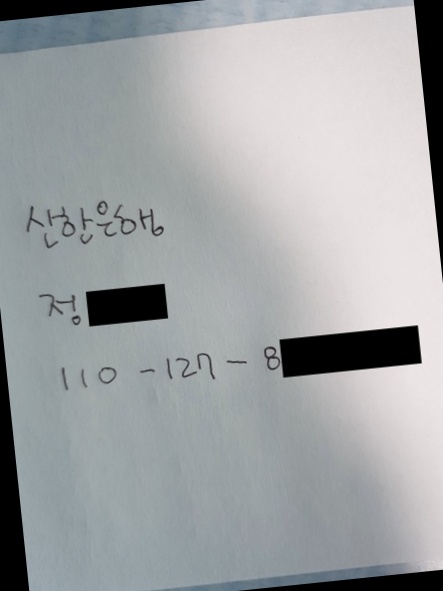 신한은행
정
110-127-8